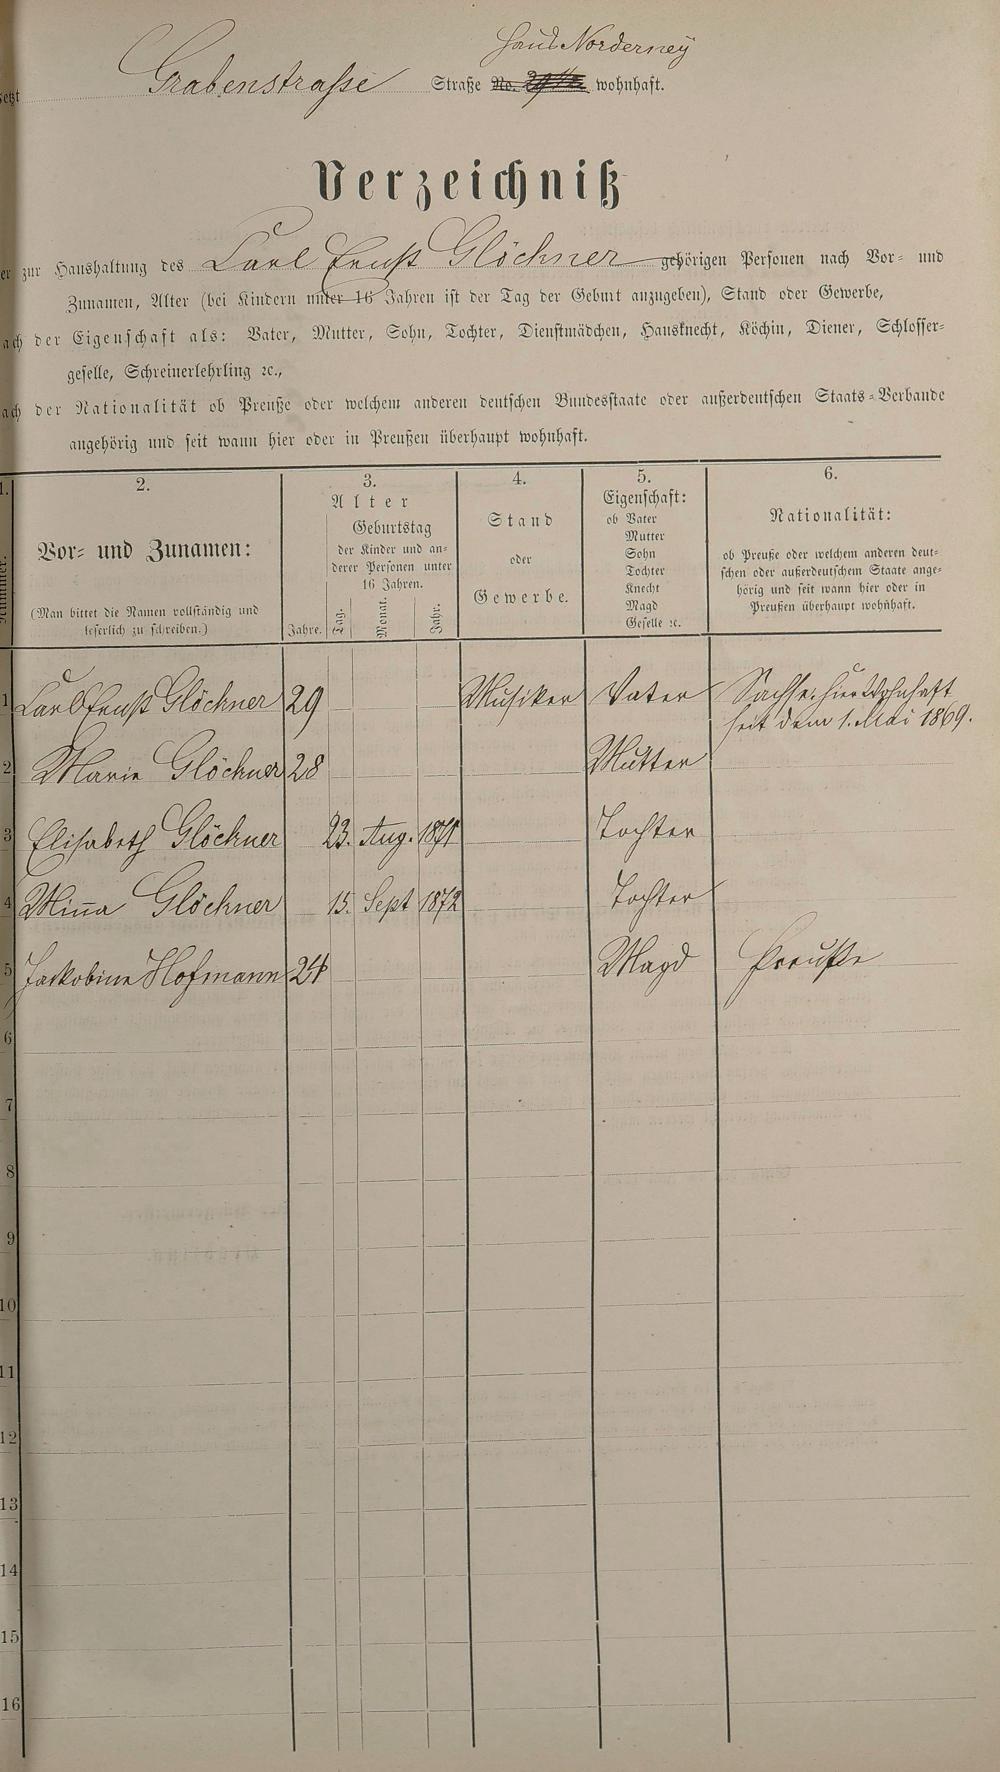 Haus Norderney
jetzt Grabenstrasse Straße No. wohnhaft.
Verzeichniß
er zur Haushaltung des Carl Ernst Glöckner gehörigen Personen nach Vor- und
Zunamen, Alter (bei Kindern unter 16 Jahren ist der Tag der Geburt anzugeben), Stand oder Gewerbe,
ach der Eigenschaft als: Vater, Mutter, Sohn, Tochter, Dienstmädchen, Hausknecht, Köchin, Diener, Schlosser-
geselle, Schreinerlehrling ꝛc.,
ach der Nationalität ob Preuße oder welchem anderen deutschen Bundesstaate oder außerdeutschen Staats-Verbande
angehörig und seit wann hier oder in Preußen überhaupt wohnhaft.
1. 2. 3. 4. 5. 6.
Nummer.
Vor- und Zunamen:
(Man bittet die Namen vollständig und
leserlich zu schreiben.)
Alter
Geburtstag
der Kinder und an-
derer Personen unter
16 Jahren.
Jahre. Tag. Monat. Jahr.
Stand
oder
Gewerbe.
Eigenschaft:
ob Vater
Mutter
Sohn
Tochter
Knecht
Magd
Geselle ꝛc.
Nationalität:
ob Preuße oder welchem anderen deut-
schen oder außerdeutschem Staate ange-
hörig und seit wann hier oder in
Preußen überhaupt wohnhaft.
1 Carl Ernst Glöckner 29 Musiker Vater Sachse. hier Wohnhaft
seit dem 1. Mai 1869.
2 Marie Glöckner 28 Mutter
3 Elisabeth Glöckner 23. Aug. 1871 Tochter
4 Mina Glöckner 15. Sept 1872 Tochter
5 Jackobine Hofmann 24 Magd Preuße
6
7
8
9
10
11
12
13
14
15
16